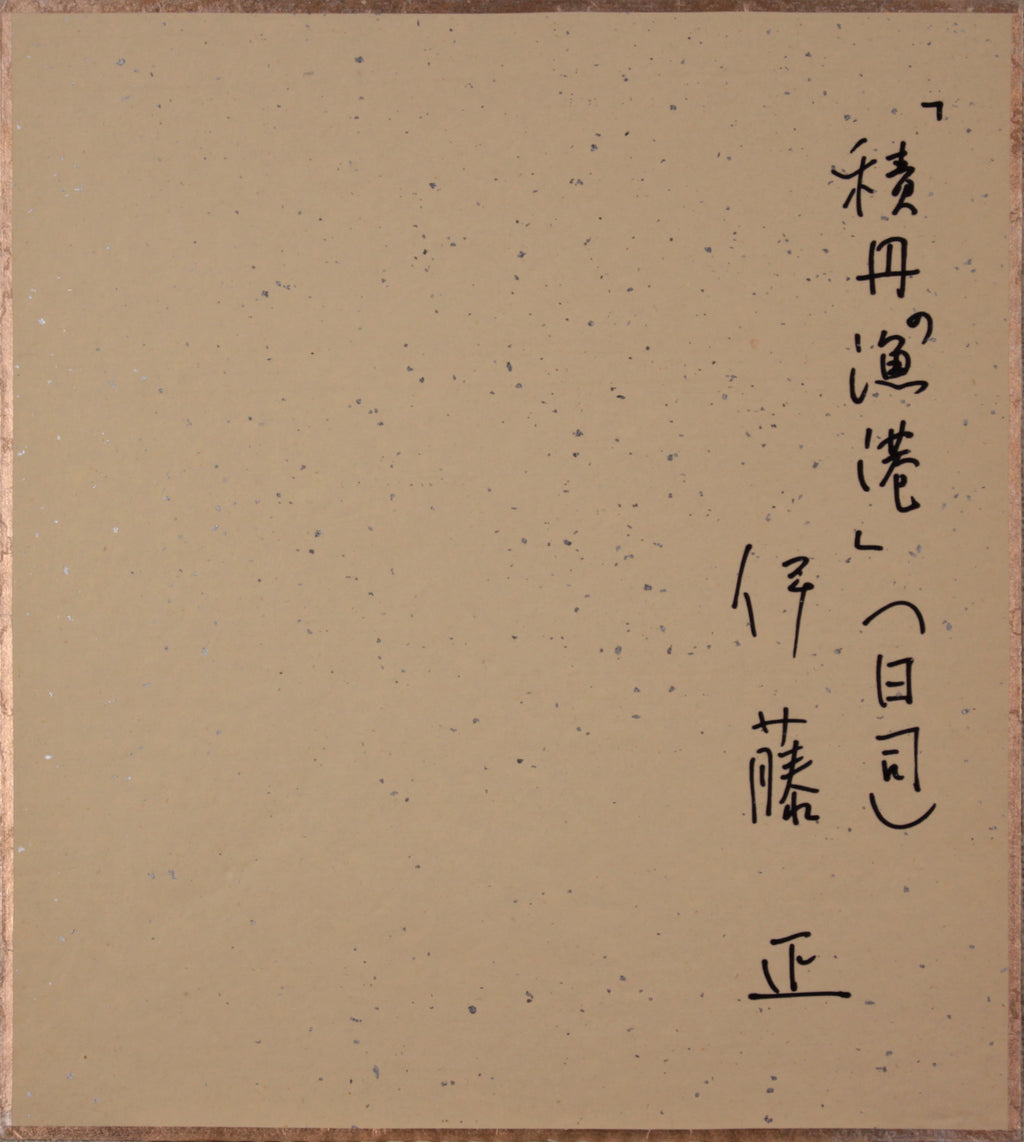 「積丹の漁港」(日司)
伊藤正